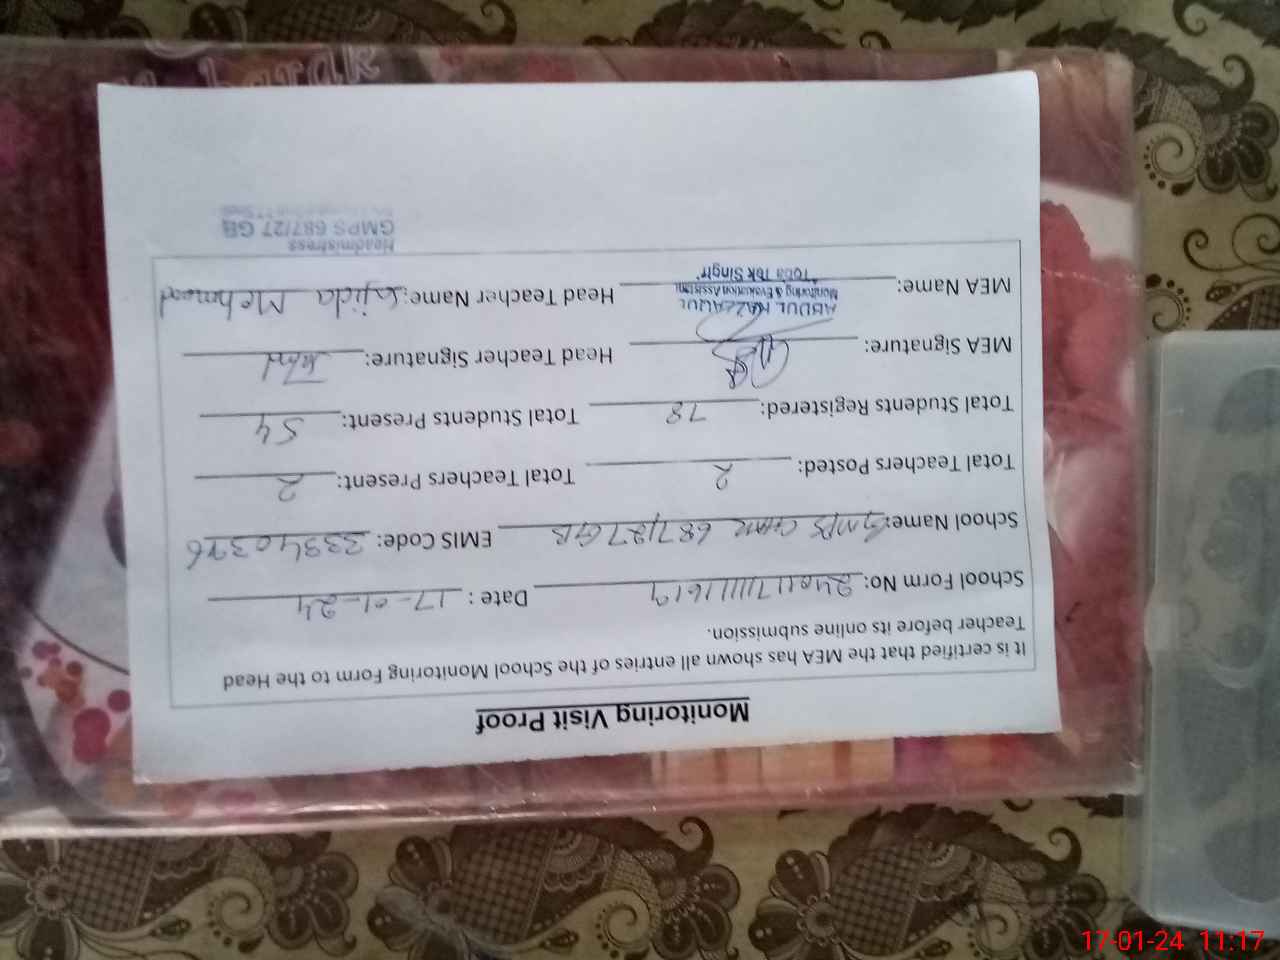 Monitoring Visit Proof
It is certified that the MEA has shown all entries of the School Monitoring Form to the Head
Teacher before its online submission.
School Form No: Date : 17-01-24
School Name: GMPS 687/27 GB EMIS Code:
Total Teachers Posted: 2 Total Teachers Present: 2
Total Students Registered: 78 Total Students Present: 54
MEA Signature: Head Teacher Signature:
ABDUL
Monitoring & Evaluation Assistant
MEA Name: Head Teacher Name: Sajida Mehmood
Toba Tek Singh
Headmistress
GMPS 687/27 GB
17-01-24 11:17